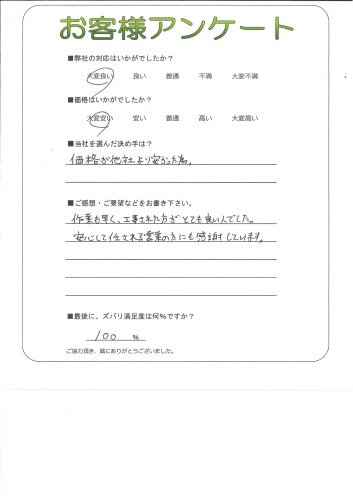 お客様アンケート
■弊社の対応はいかがでしたか?
大変良い 良い 普通 不満 大変不満
■価格はいかがでしたか?
大変安い 安い 普通 高い 大変高い
■当社を選んだ決め手は?
価格が他社より安かった為。
■ご感想・ご要望などをお書き下さい。
作業も早く、工事された方がとても良い人でした。
安心して任される営業の方にも感謝しています。
■最後に、ズバリ満足度は何%ですか?
100 %
ご協力頂き、誠にありがとうございました。